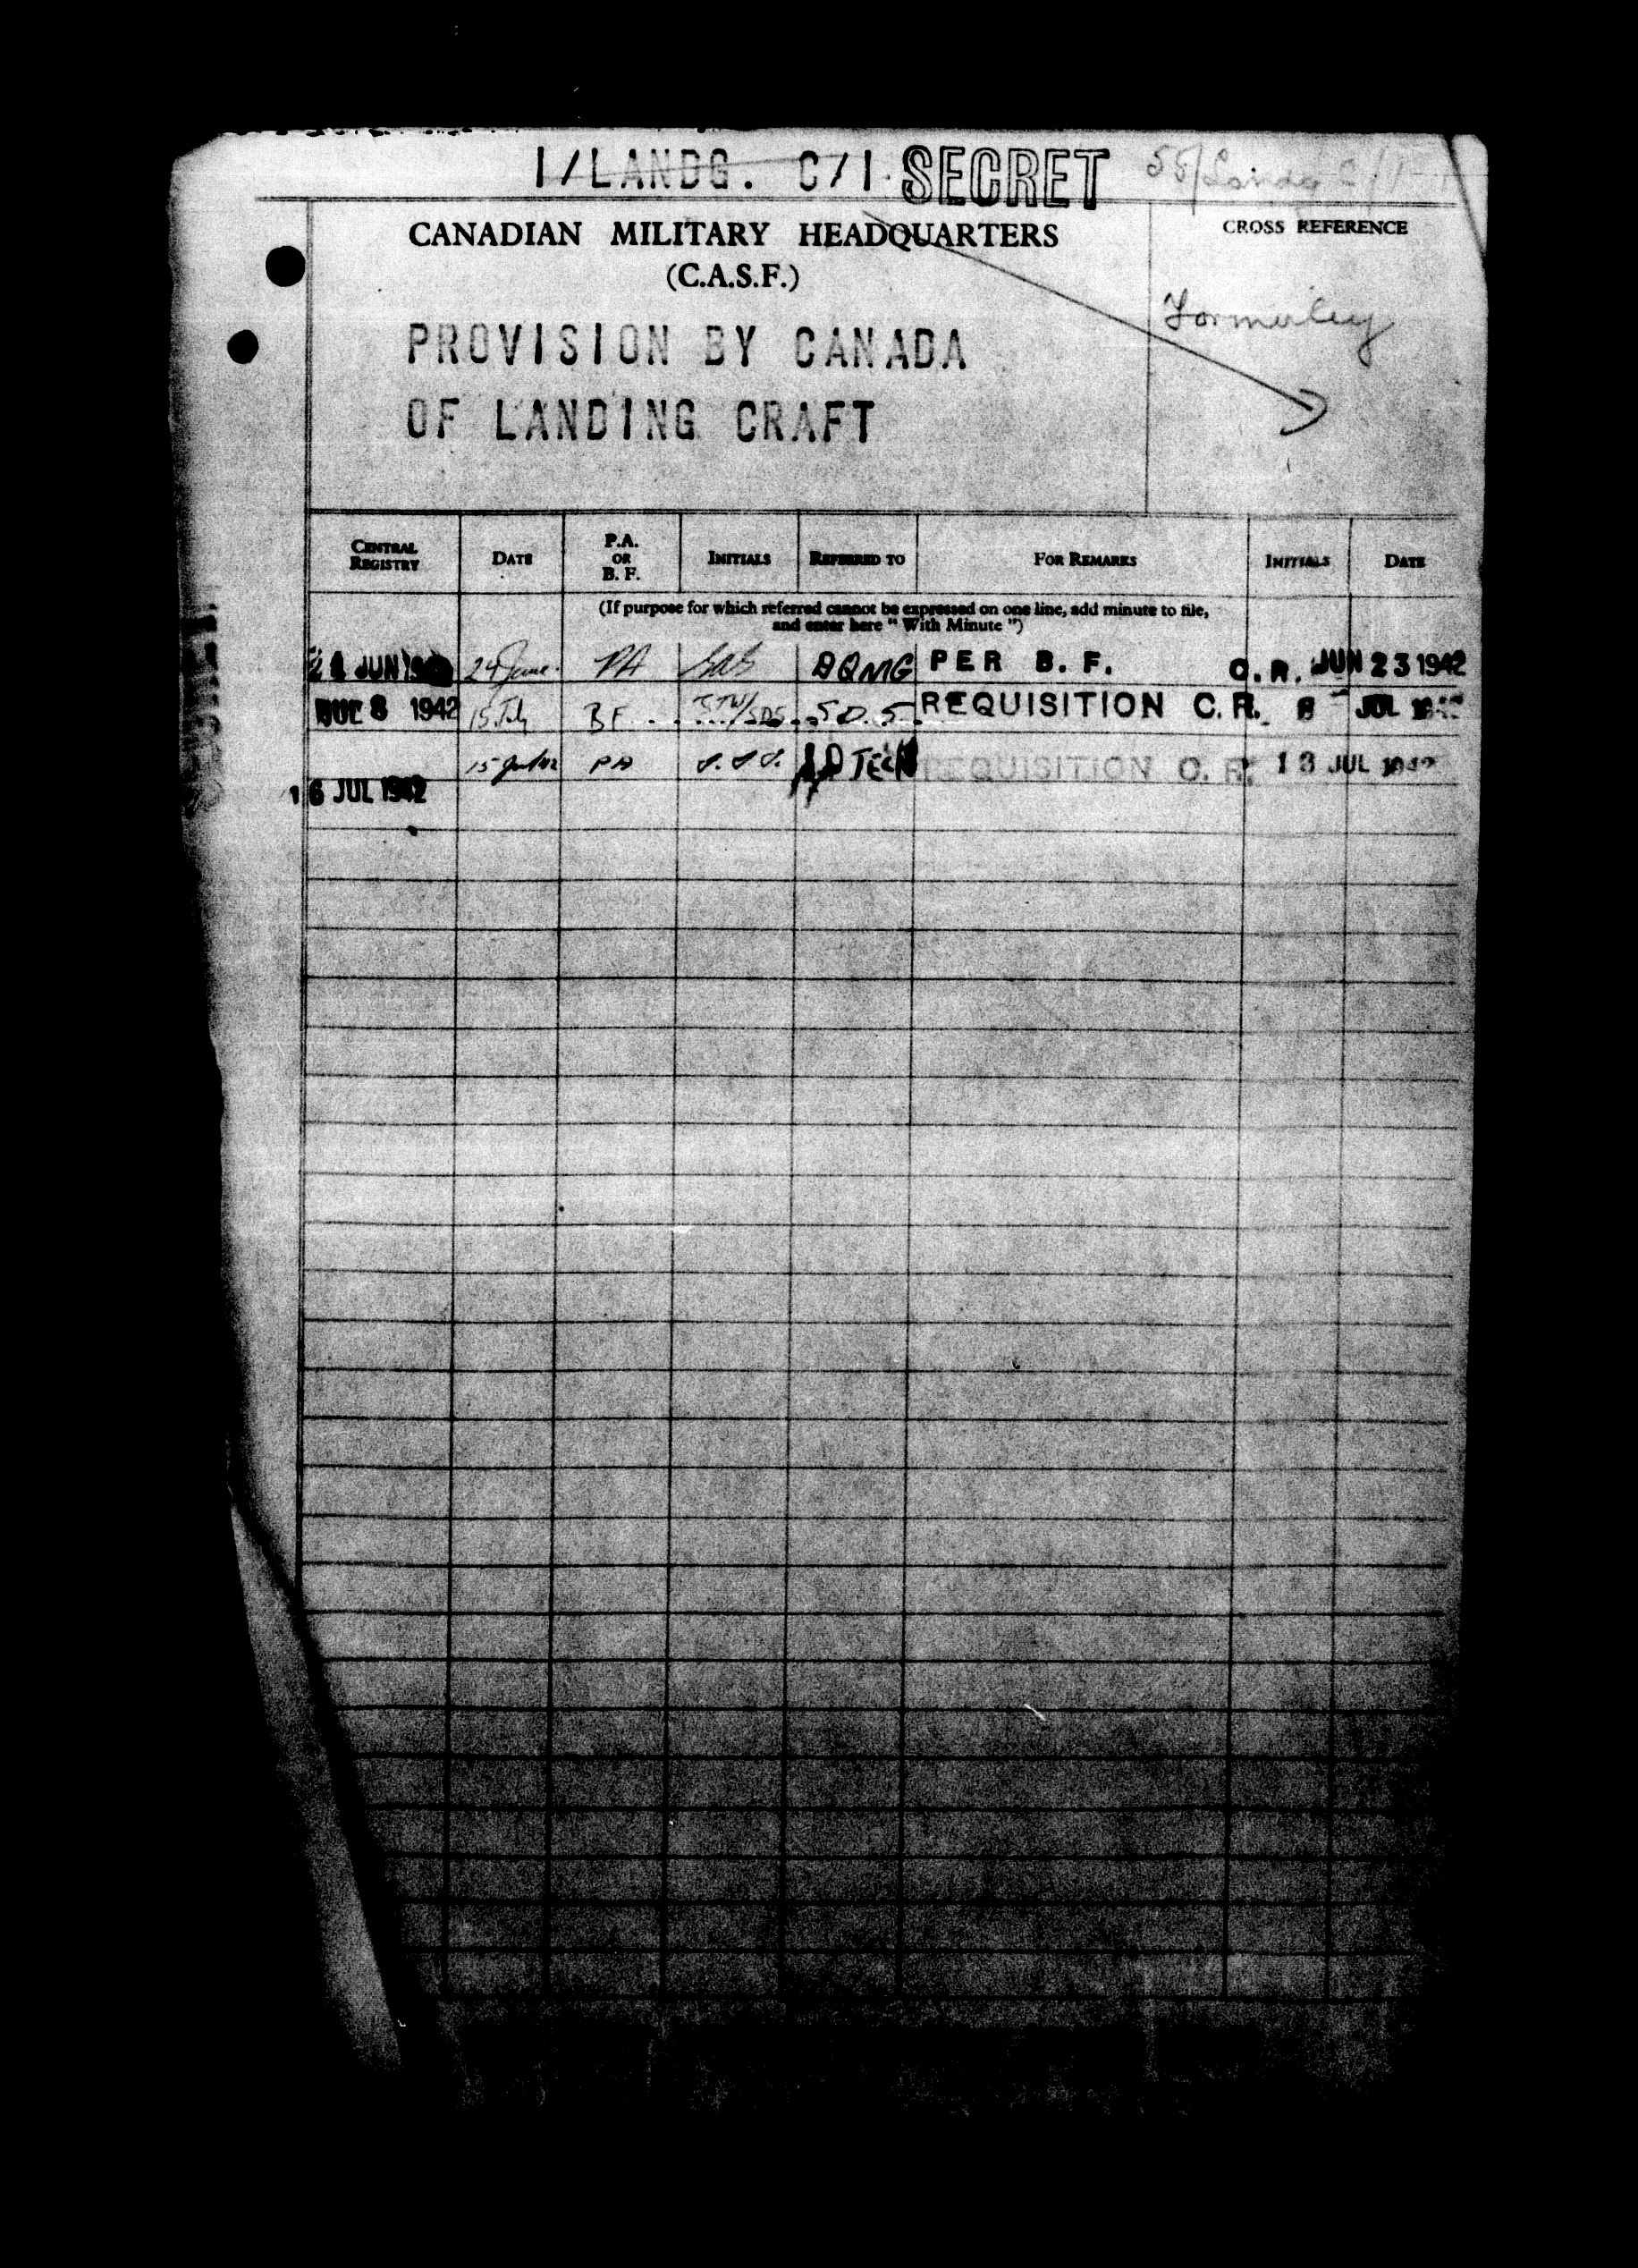 1/LANDG. C/1. SECRET 55/Landg C/1-1
CANADIAN MILITARY HEADQUARTERS
(C.A.S.F.)
CROSS REFERENCE
Formerley
PROVISION BY CANADA
OF LANDING CRAFT
CENTRAL REGISTRY DATE P.A. OR B. F. INITIALS REFERRED TO FOR REMARKS INITIALS DATE
(If purpose for which referred cannot be expressed on one line, add minute to file,
and enter here " With Minute ")
JUN 24 June. PA DQMG PER B. F. C.R. JUN 23 1942
JUL 8 1942 15 July BF S.D.5. REQUISITION C.R. 8 JUL
15 Jul 42 PA TECH REQUISITION C.R. 13 JUL 1942
16 JUL 1942